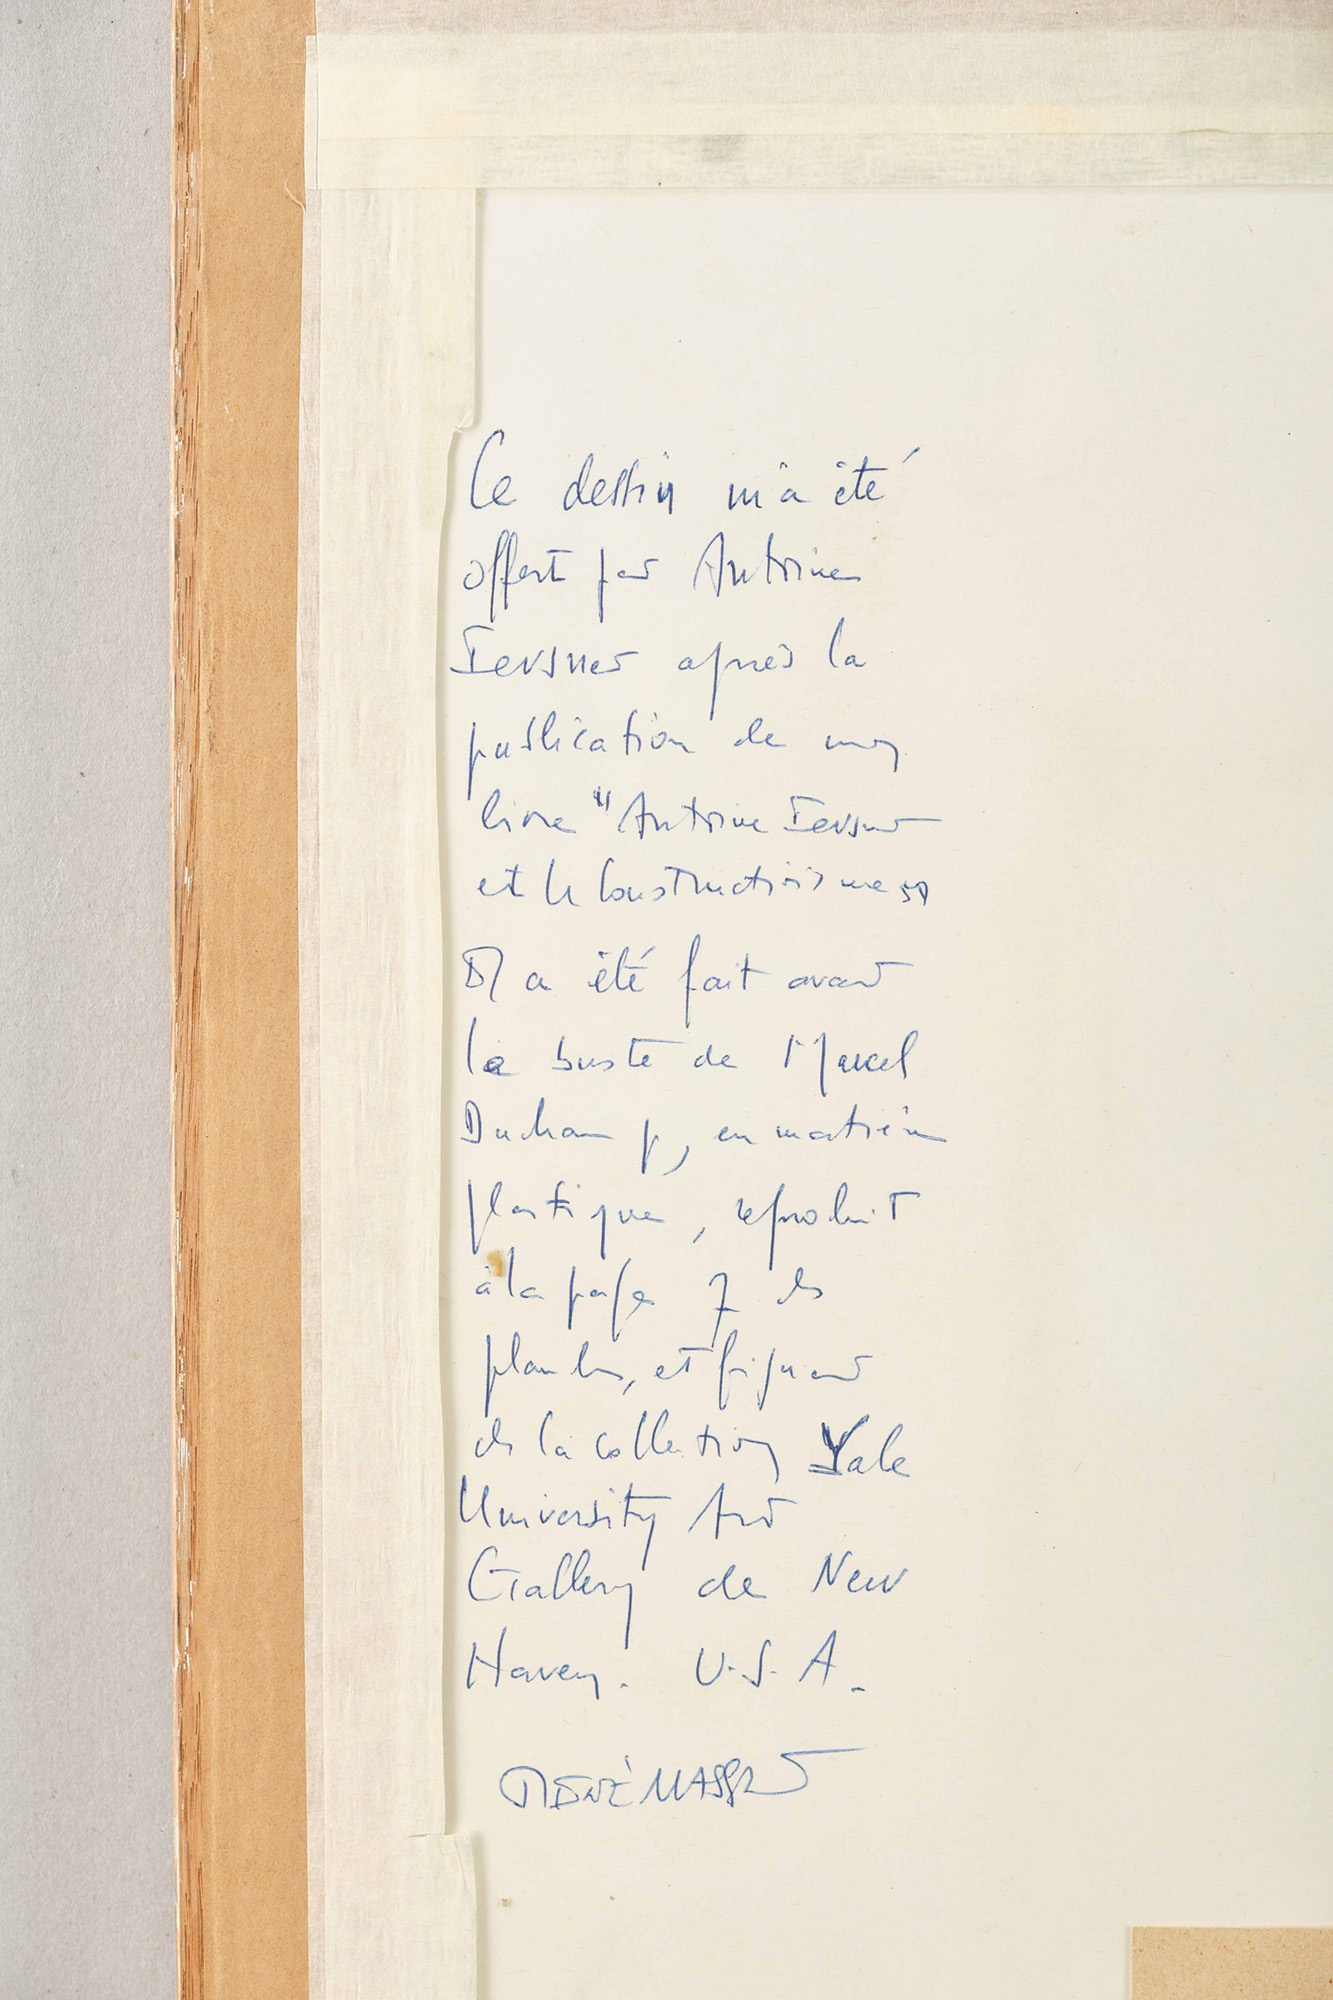 Ce dessin m'a été
offert par Antoine
Pevsner après la
publication de mon
livre "Antoine Pevsner
et le Constructivisme"
Il a été fait avant
le buste de Marcel
Duchamp, en matière
plastique, reproduit
à la page 7 des
planches, et figurant
de la collection Yale
University Art
Gallery de New
Haven. U.S.A.
RENÉ MASSAT